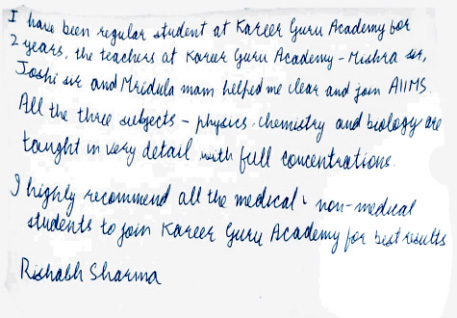 I have been regular student at Kareer Guru Academy for
2 years, the teachers at Kareer Guru Academy - Mishra sir,
Joshi sir and Mridula mam helped me clear and join AIIMS.
All the three subjects - physics, chemistry and biology are
taught in very detail with full concentrations.
I highly recommend all the medical & non-medical
students to join Kareer Guru Academy for best results
Rishabh Sharma